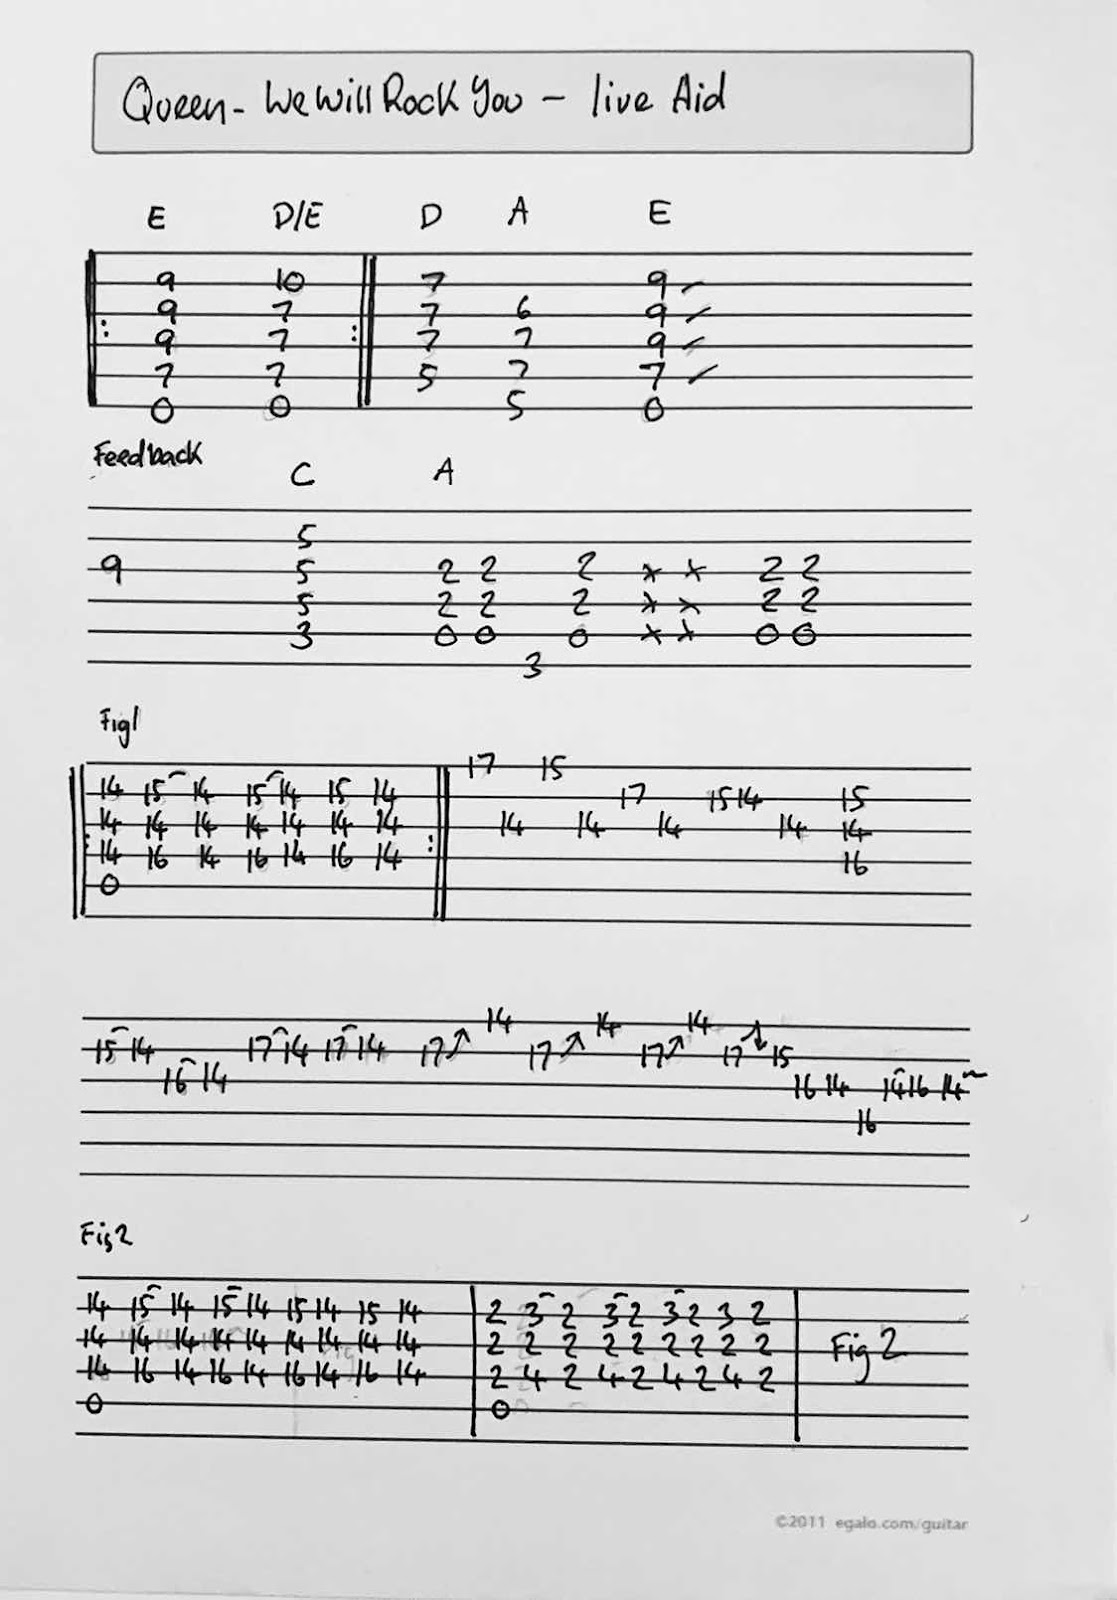 Queen - We Will Rock You - live Aid
E D/E D A E
9 10 7 9
9 7 7 6 9
9 7 7 7 9
7 7 5 7 7
0 0 5 0
Feedback
C A
5
9 5 2 2 2 x x 2 2
5 2 2 2 x x 2 2
3 0 0 0 x x 0 0
3
Fig1
17 15
14 15 14 15 14 15 14 17 15 14 15
14 14 14 14 14 14 14 14 14 14 14 14
14 16 14 16 14 16 14 16
0
14 14 14
15 14 17 14 17 14 17 17 17 17 15
16 14 16 14 14 16 14
16
Fig2
14 15 14 15 14 15 14 15 14 2 3 2 3 2 3 2 3 2
14 14 14 14 14 14 14 14 14 2 2 2 2 2 2 2 2 2 Fig 2
14 16 14 16 14 16 14 16 14 2 4 2 4 2 4 2 4 2
0 0
©2011 egalo.com/guitar